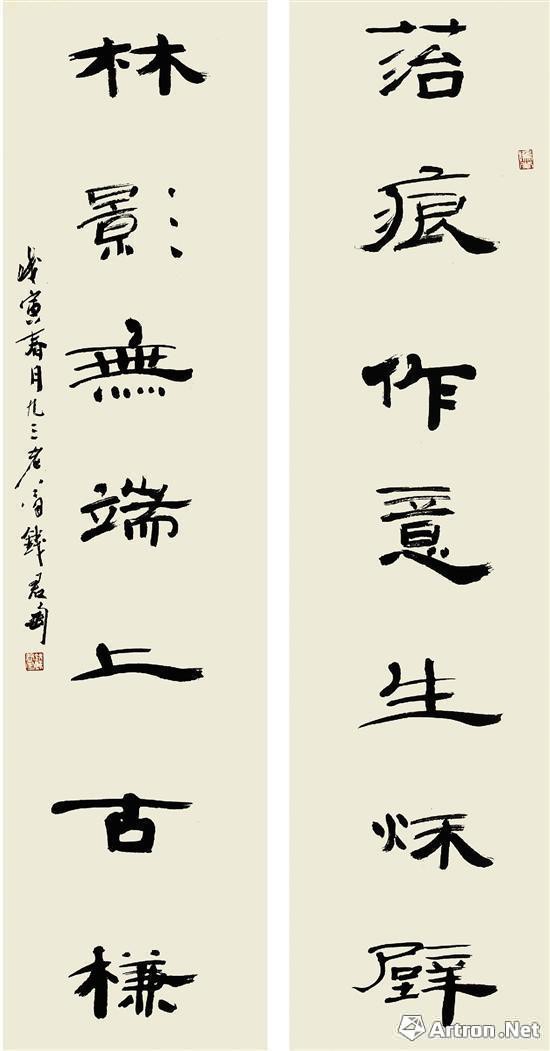 菭痕作意生秌壁
林影無端上古槏
戊寅春月九三老翁錢君匋
Artron.Net